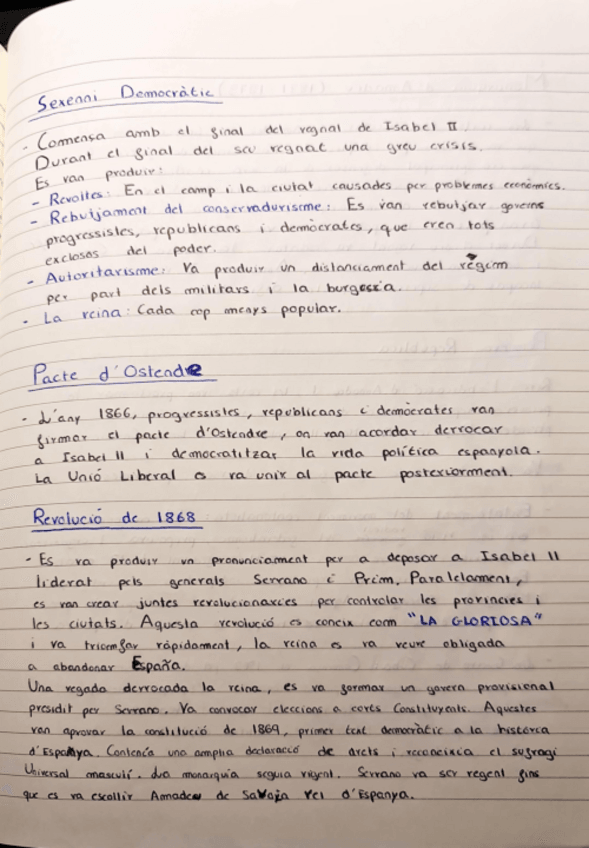 Sexenni Democràtic
- Comença amb el final del regnat de Isabel II.
Durant el final del seu regnat una greu crisis.
Es van produir:
- Revoltes: En el camp i la ciutat causades per problemes econòmics.
- Rebutjament del conservadurisme: Es van rebutjar governs
progressistes, republicans i demòcrates, que eren tots
exclosos del poder.
- Autoritarisme: Va produir un distanciament del règim
per part dels militars i la burgesia.
- La reina: Cada cop menys popular.
Pacte d'Ostende
- L'any 1866, progressistes, republicans i demòcrates van
firmar el pacte d'Ostendre, on van acordar derrocar
a Isabel II i democratitzar la vida política espanyola.
La Unió Liberal es va unir al pacte posteriorment.
Revolució de 1868
- Es va produir un pronunciament per a deposar a Isabel II
liderat pels generals Serrano i Prim. Paralelament,
es van crear juntes revolucionaries per controlar les províncies i
les ciutats. Aquesta revolució es coneix com "LA GLORIOSA"
i va triomfar ràpidament, la reina es va veure obligada
a abandonar España.
Una vegada derrocada la reina, es va formar un govern provisional
presidit per Serrano. Va convocar eleccions a corts Constituyents. Aquestes
van aprovar la constitució de 1869, primer text democràtic a la història
d'Espanya. Contenía una amplia declaració de drets i reconeixia el sufragi
Universal masculí. La monarquia seguia vigent. Serrano va ser regent fins
que es va escollir Amadeu de Savoia rei d'Espanya.